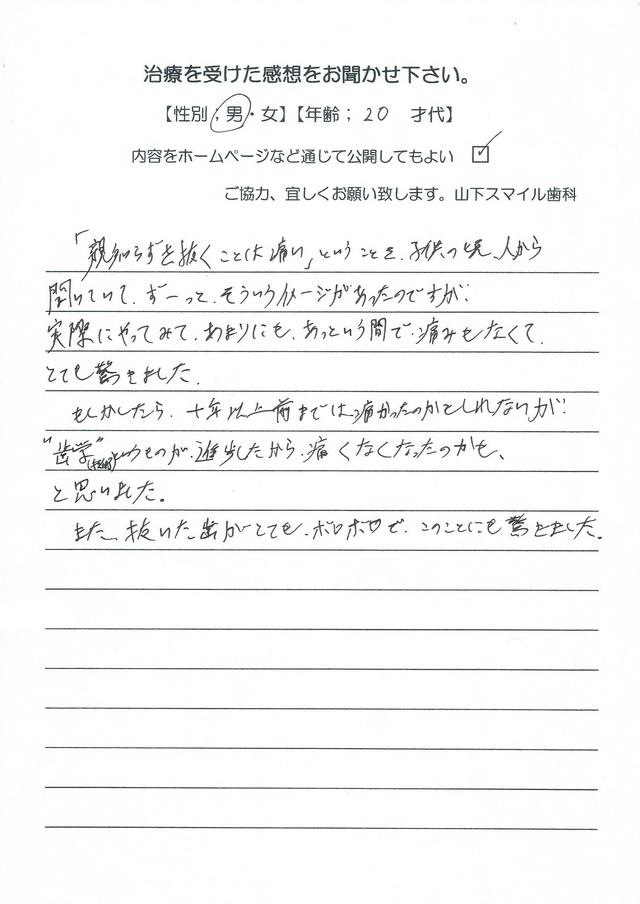 治療を受けた感想をお聞かせ下さい。
【性別；男・女】【年齢；20 才代】
内容をホームページなど通じて公開してもよい ☑
ご協力、宜しくお願い致します。山下スマイル歯科
「親知らずを抜くことは痛い」ということを、子供の頃、人から
聞いていて、ずーっと、そういうイメージがあったのですが、
実際にやってみて、あまりにも、あっという間で、痛みもなくて、
とても驚きました。
もしかしたら、十年以上前までは痛かったのかもしれないが、
"歯学"というものが、進歩したから、痛くなくなったのかも、
と思いました。
また、抜いた歯がとても、ボロボロで、このことにも驚きました。